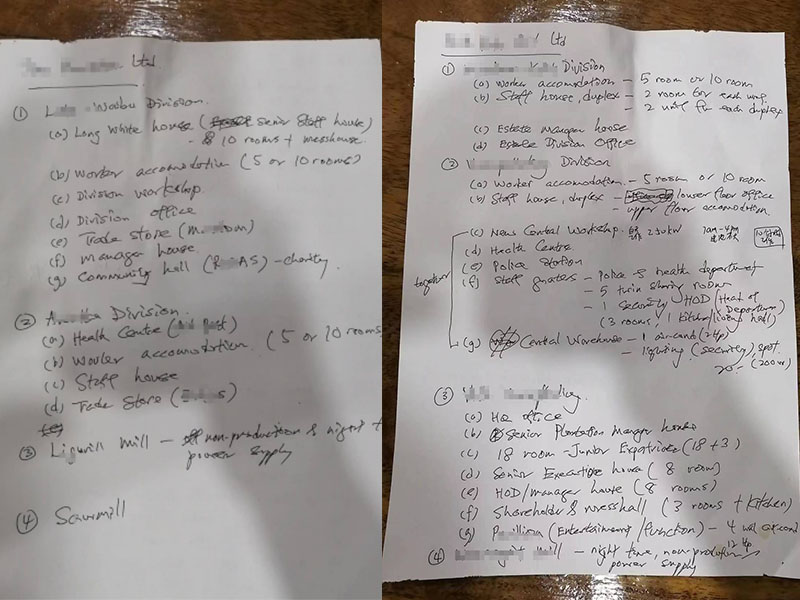 Ltd
① Division
(a) Long white house (senior staff house)
- 10 rooms + messhouse
(b) Worker accomodation (5 or 10 rooms)
(c) Division workshop
(d) Division office
(e) Trade store
(f) manager house
(g) Community hall - charity
② Division
(a) Health Centre
(b) Worker accomodation (5 or 10 rooms
(c) Staff house
(d) Trade Store
③ mill - non-production & night +
power supply
④ Sawmill
Ltd
① Division
(a) Worker accomodation - 5 room or 10 room
(b) Staff house, duplex - 2 room for each unit
- 2 unit for each duplex
(c) Estate Manager house
(d) Estate Division Office
② Division
(a) Worker accomodation - 5 room or 10 room
(b) Staff house, duplex - lower floor office
- upper floor accomodation
together
(c) New Central Workshop 250KW 7am-4pm
(d) Health Centre
(e) Police Station
(f) Staff quaters - Police & Health department
- 5 twin sharing rooms
- 1 security HOD (Head of Department)
(3 rooms, 1 kitchen/living hall)
(g) Central Warehouse - 1 aircond (2 Hp)
- lighting (security) spot
(200w)
③
(a) HQ office
(b) Senior Plantation Manager house
(c) 18 room - Junior Expatriates (18 + 3)
(d) Senior Executive house (8 room)
(e) HOD/manager house (8 rooms)
(f) Shareholder & messhall (3 rooms + kitchen)
(g) (Entertainment/function) - 4 aircond
12 Hp
④ mill - night time, non-production
power supply